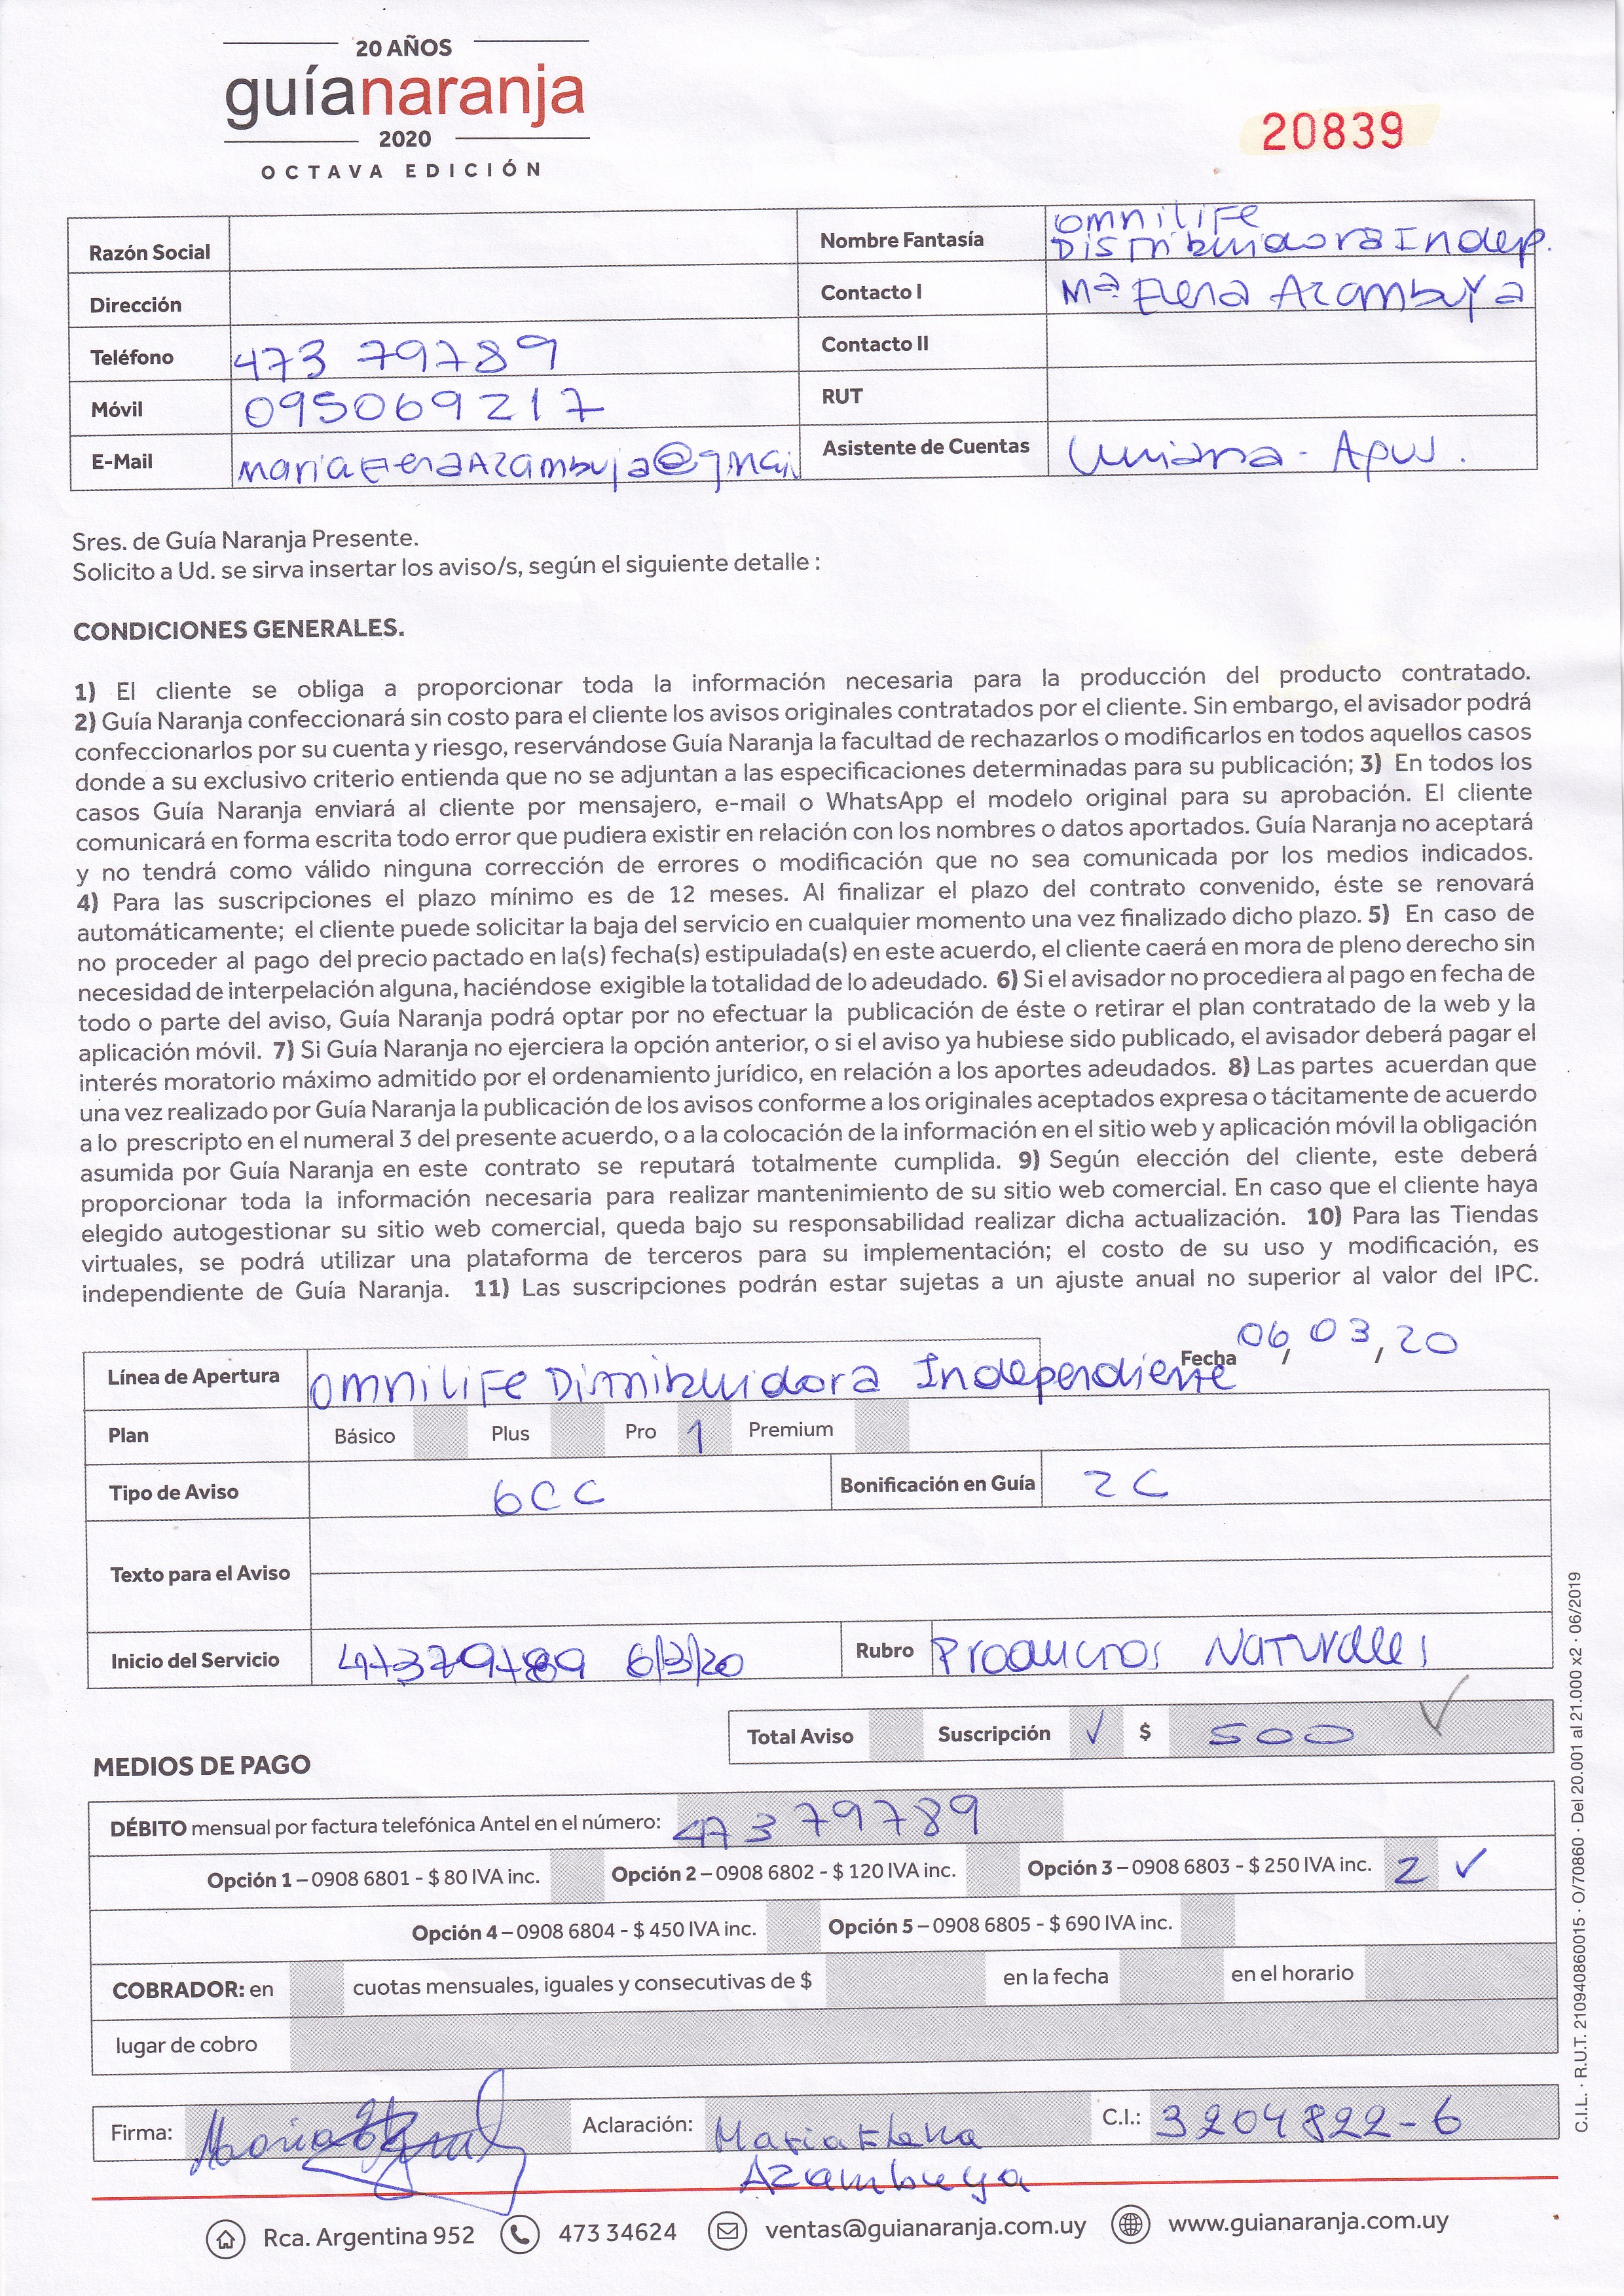 20 AÑOS
guíanaranja
2020
OCTAVA EDICIÓN
20839
Razón Social
Nombre Fantasía omnilife
Distribuidora Indep.
Dirección
Contacto I Mª Elena Azambuya
Teléfono 473 79789
Contacto II
Móvil 095069217
RUT
E-Mail mariaElenaAzambuja@gmai
Asistente de Cuentas
Sres. de Guía Naranja Presente.
Solicito a Ud. se sirva insertar los aviso/s, según el siguiente detalle :
CONDICIONES GENERALES.
1) El cliente se obliga a proporcionar toda la información necesaria para la producción del producto contratado.
2) Guía Naranja confeccionará sin costo para el cliente los avisos originales contratados por el cliente. Sin embargo, el avisador podrá
confeccionarlos por su cuenta y riesgo, reservándose Guía Naranja la facultad de rechazarlos o modificarlos en todos aquellos casos
donde a su exclusivo criterio entienda que no se adjuntan a las especificaciones determinadas para su publicación; 3) En todos los
casos Guía Naranja enviará al cliente por mensajero, e-mail o WhatsApp el modelo original para su aprobación. El cliente
comunicará en forma escrita todo error que pudiera existir en relación con los nombres o datos aportados. Guía Naranja no aceptará
y no tendrá como válido ninguna corrección de errores o modificación que no sea comunicada por los medios indicados.
4) Para las suscripciones el plazo mínimo es de 12 meses. Al finalizar el plazo del contrato convenido, éste se renovará
automáticamente; el cliente puede solicitar la baja del servicio en cualquier momento una vez finalizado dicho plazo. 5) En caso de
no proceder al pago del precio pactado en la(s) fecha(s) estipulada(s) en este acuerdo, el cliente caerá en mora de pleno derecho sin
necesidad de interpelación alguna, haciéndose exigible la totalidad de lo adeudado. 6) Si el avisador no procediera al pago en fecha de
todo o parte del aviso, Guía Naranja podrá optar por no efectuar la publicación de éste o retirar el plan contratado de la web y la
aplicación móvil. 7) Si Guía Naranja no ejerciera la opción anterior, o si el aviso ya hubiese sido publicado, el avisador deberá pagar el
interés moratorio máximo admitido por el ordenamiento jurídico, en relación a los aportes adeudados. 8) Las partes acuerdan que
una vez realizado por Guía Naranja la publicación de los avisos conforme a los originales aceptados expresa o tácitamente de acuerdo
a lo prescripto en el numeral 3 del presente acuerdo, o a la colocación de la información en el sitio web y aplicación móvil la obligación
asumida por Guía Naranja en este contrato se reputará totalmente cumplida. 9) Según elección del cliente, este deberá
proporcionar toda la información necesaria para realizar mantenimiento de su sitio web comercial. En caso que el cliente haya
elegido autogestionar su sitio web comercial, queda bajo su responsabilidad realizar dicha actualización. 10) Para las Tiendas
virtuales, se podrá utilizar una plataforma de terceros para su implementación; el costo de su uso y modificación, es
independiente de Guía Naranja. 11) Las suscripciones podrán estar sujetas a un ajuste anual no superior al valor del IPC.
Fecha 06/03/20
Línea de Apertura omnilife Distribuidora Independiente
Plan Básico Plus Pro 1 Premium
Tipo de Aviso 6CC Bonificación en Guía 2C
Texto para el Aviso
Inicio del Servicio 47379789 6/3/20 Rubro Productos Naturales
Total Aviso Suscripción ✓ $ 500 ✓
MEDIOS DE PAGO
DÉBITO mensual por factura telefónica Antel en el número: 47379789
Opción 1 – 0908 6801 - $ 80 IVA inc. Opción 2 – 0908 6802 - $ 120 IVA inc. Opción 3 – 0908 6803 - $ 250 IVA inc. 2 ✓
Opción 4 – 0908 6804 - $ 450 IVA inc. Opción 5 – 0908 6805 - $ 690 IVA inc.
COBRADOR: en cuotas mensuales, iguales y consecutivas de $ en la fecha en el horario
lugar de cobro
Firma: Aclaración: Maria Elena
Azambuya
C.I.: 3204822-6
Rca. Argentina 952 473 34624 ventas@guianaranja.com.uy www.guianaranja.com.uy
C.I.L. · R.U.T. 210940860015 · O/70860 · Del 20.001 al 21.000 x2 · 06/2019